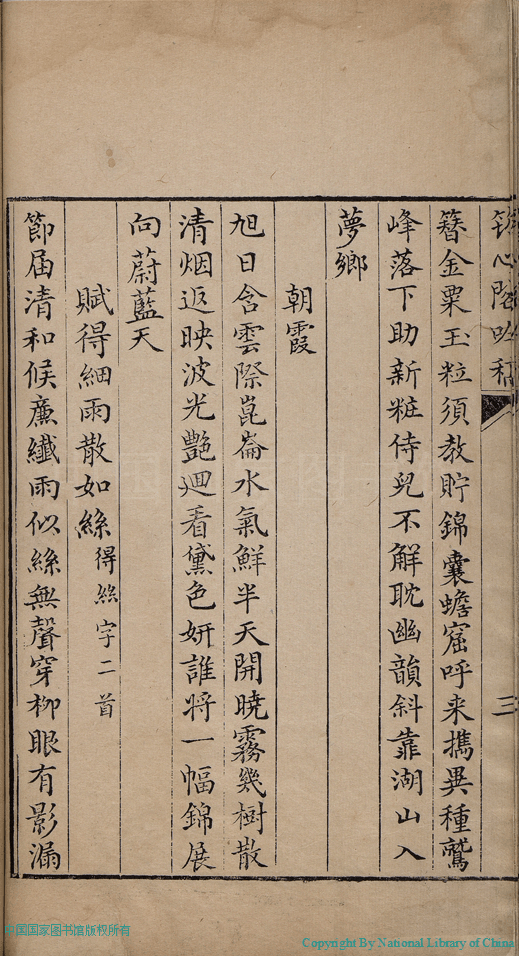 簪金粟玉粒須教貯錦囊蟾窟呼来攜異種鷲
峰落下助新粧侍兒不解耽幽韻斜靠湖山入
夢鄉
朝霞
旭日含雲際崑崙水氣鮮半天開曉霧幾樹散
清烟返映波光艷迴看黛色妍誰將一幅錦展
向蔚藍天
賦得細雨散如絲得絲字二首
節届清和候廉纖雨似絲無聲穿柳眼有影漏
心 吟稿
三
中国国家图书馆版权所有
Copyright By National Library of China